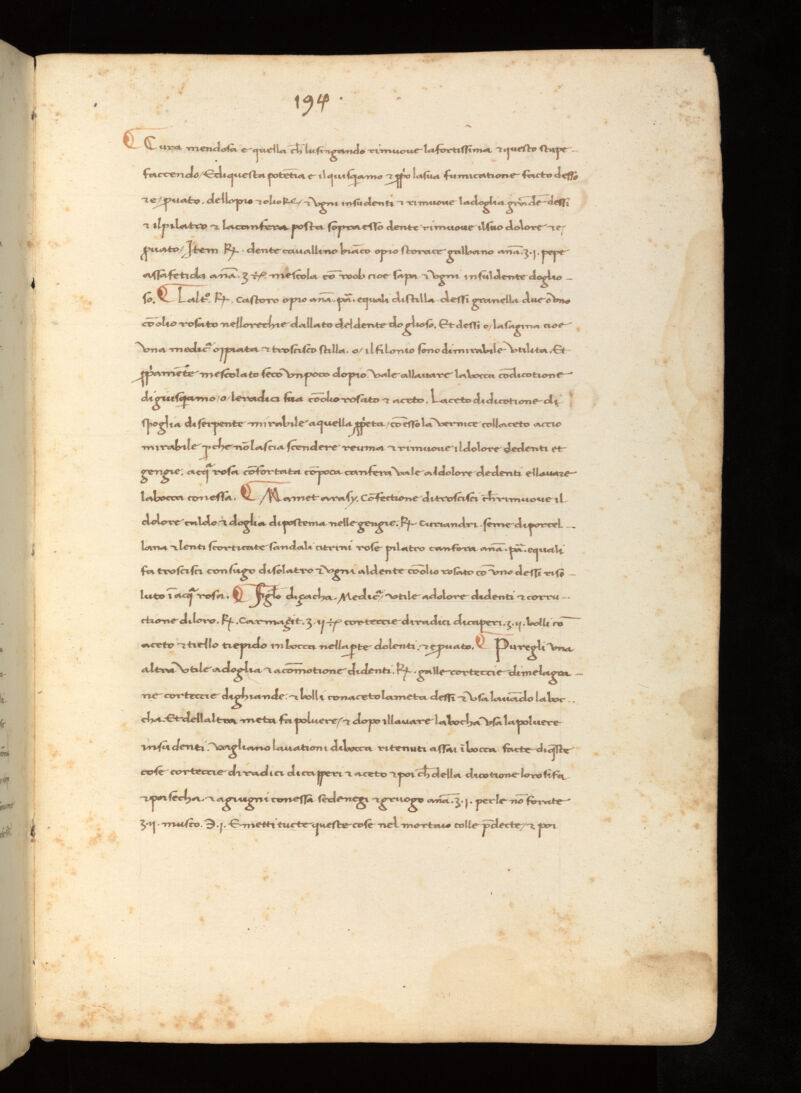 194
Cura mendosa e quella ch̄ lusingando rimuove lafortissima ⁊ questo stupe-
faccendo / Ediquesta potētia e ilqusquiamo ⁊ ꝓpo lasua fumicatione facto desso
⁊ e / puato. dellopio ⁊ olio R̄ / ⁊ Ugni insudenti ⁊ rimuove ladoglia grāde dessi
⁊ ilpilatro ⁊ lacanfera posta sopra esso dente rimuove ilsuo dolore ⁊ e /
puato / Item ℞. dente cavallino biāco opio storace galbano anā. ʒ. j. pepe
assafetida anā. ʒ mescola cō roob cioe sapa ⁊ Ugni insuldente doglio-
so. Laltº. ℞. castoro opio anā. pā. equali distilla dessi granella due o Uno
cōolio rosato nellorechie dallato deldente doglioso. Et dessi o / lasagina cioe
Una medicᵃ oppiata ⁊ troscisco stilla. o / ilfilonio sono dimirabile Utilita. Et
mescolato seco Unpoco dopio Vale allavare labocca cōdicotione
digiusquiamo / o / leradici sua cōolio rosato ⁊ aceto. Laceto didicotione di
spoglia diserpente mirabile aquella / cō essola Vernice collaceto accio
mirabile ꝑ che nōlascia scendere reuma ⁊ rimuove ildolore dedenti et
gengie: acqᵃ rosa cōfortata cōpoca canfera Vale aldolore dedenti ellavare
labocca conessa. Mamet arasy. Cōfectione ditroscisci ch̄ rimuove il
dolore caldo ⁊ doglia dipostema nelle gengie. ℞. Curiandri. seme diporcel-
lana ⁊ lenti scorticate sandali citrini rose pilatro canfora anā. pā. equali
fa troscisci consugo disolatro ⁊ Ugni aldente cōolio rosato cō Uno dessi riso-
luto ī acqᵃ rosa. digacha. Medicᵃ Utile adolore didenti ⁊ corru-
ctione diloro. ℞. Carmagit. ʒ. ij corteccie diradici dicaperi. ʒ. ij. bolli cō
aceto ⁊ tiello tiepido inbocca nellaꝑte dolenti: ⁊ e puato. Puregli Una
altra Utile adoglia ⁊ acōmotione didenti. ℞. galle corteccie dimelagra-
ne corteccie dighiande: ⁊ bolli conaceto lameta dessi ⁊ Usa lavādo laboc-
cha. Et dellaltra meta fa polvere / ⁊ dopo illavare labocha Usa lapolvere
insudenti. Vagliano lavationi dibocca ritenuti assai ī bocca facte diq̄ste
cose corteccie di radici dicapperi ⁊ aceto ⁊ poi ch̄ della dicotione loro sifa
⁊ poi secha. ⁊ agiugni conessa sedenegi ⁊ gruogo anā. ʒ. j. perle nō forate
ʒ. ij. musco. ℈. j. E metti tucte queste cose nel mortaio colle p̄decte / ⁊ poi